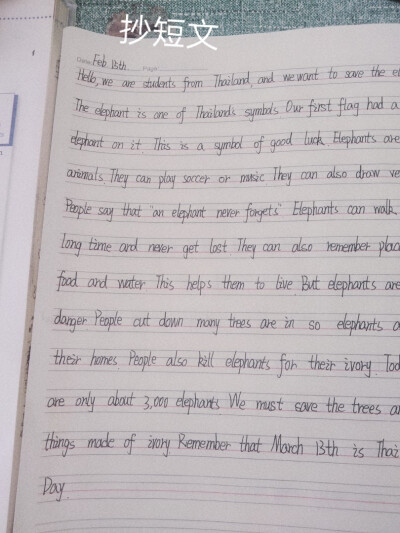 抄短文
Date Feb. 13th Page
Hello, we are students from Thailand, and we want to save the el
The elephant is one of Thailand's symbols Our first flag had a
elephant on it This is a symbol of good luck Elephants are
animals They can play soccer or music They can also draw ve
People say that "an elephant never forgets" Elephants can walk
long time and never get lost They can also remember plac
food and water This helps them to live But elephants are
danger People cut down many trees are in so elephants a
their homes People also kill elephants for their ivory Tod
are only about 3,000 elephants We must save the trees a
things made of ivory Remember that March 13th is Thai
Day.